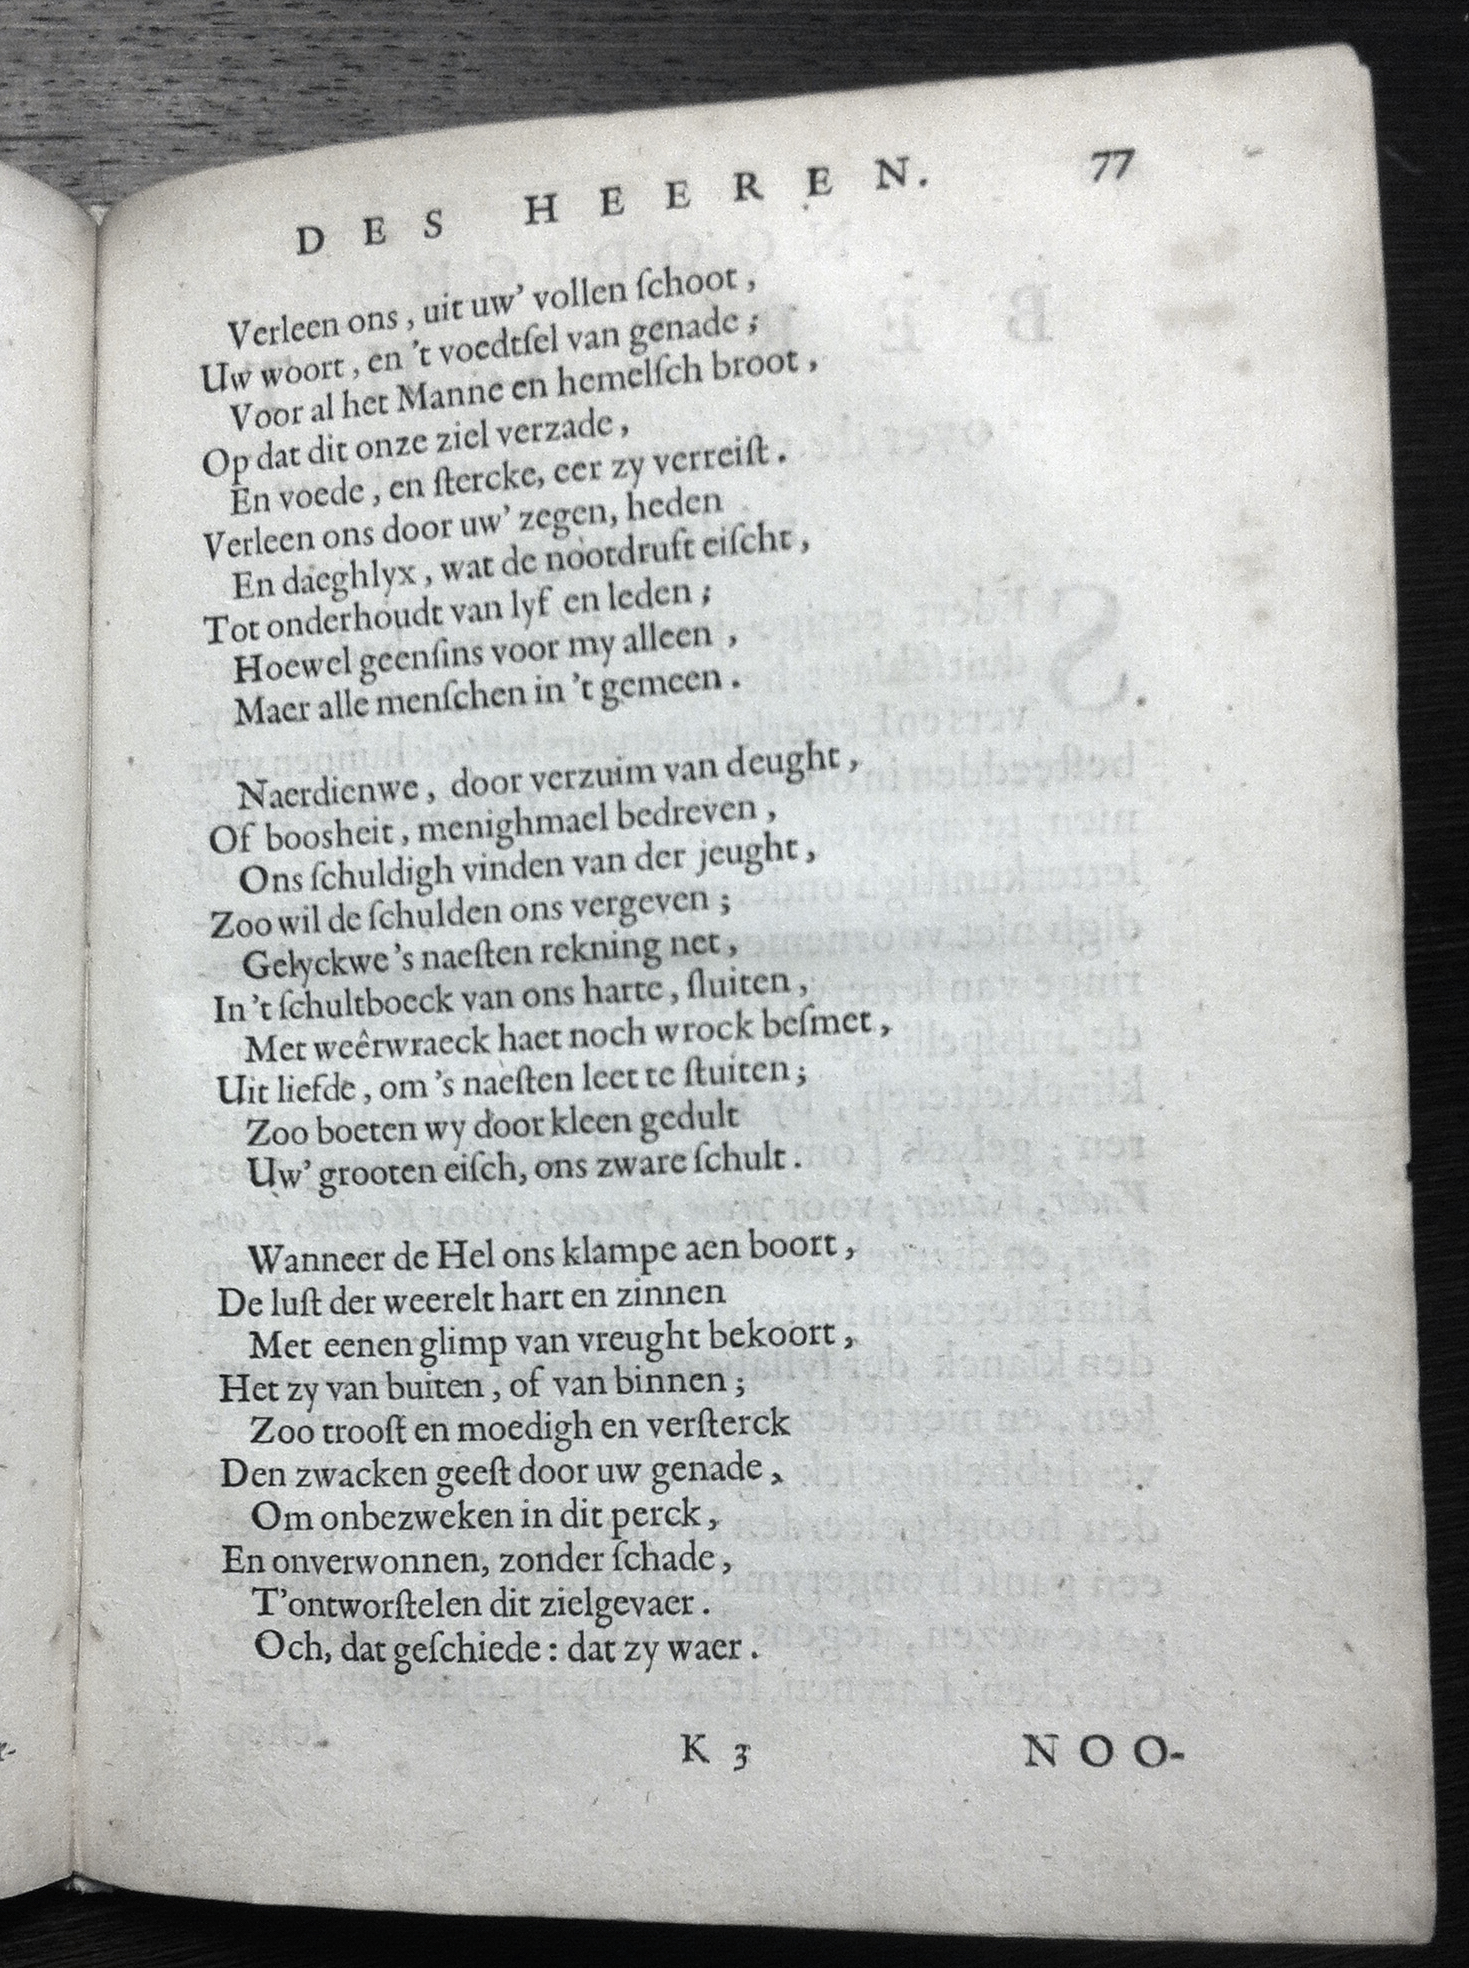 DES HEEREN. 77
Verleen ons, uit uw' vollen ſchoot,
Uw woort, en 't voedtſel van genade;
Voor al het Manne en hemelſch broot,
Op dat dit onze ziel verzade,
En voede, en ſtercke, eer zy verreiſt.
Verleen ons door uw' zegen, heden
En daeghlyx, wat de nootdruft eiſcht,
Tot onderhoudt van lyf en leden;
Hoewel geenſins voor my alleen,
Maer alle menſchen in 't gemeen.
Naerdienwe, door verzuim van deught,
Of boosheit, menighmael bedreven,
Ons ſchuldigh vinden van der jeught,
Zoo wil de ſchulden ons vergeven;
Gelyckwe 's naeſten rekning net,
In 't ſchultboeck van ons harte, ſluiten,
Met weêrwraeck haet noch wrock beſmet,
Uit liefde, om 's naeſten leet te ſtuiten;
Zoo boeten wy door kleen gedult
Uw' grooten eiſch, ons zware ſchult.
Wanneer de Hel ons klampe aen boort,
De luſt der weerelt hart en zinnen
Met eenen glimp van vreught bekoort,
Het zy van buiten, of van binnen;
Zoo trooſt en moedigh en verſterck
Den zwacken geeſt door uw genade,
Om onbezweken in dit perck,
En onverwonnen, zonder ſchade,
T'ontworſtelen dit zielgevaer.
Och, dat geſchiede: dat zy waer.
K 3 NOO-